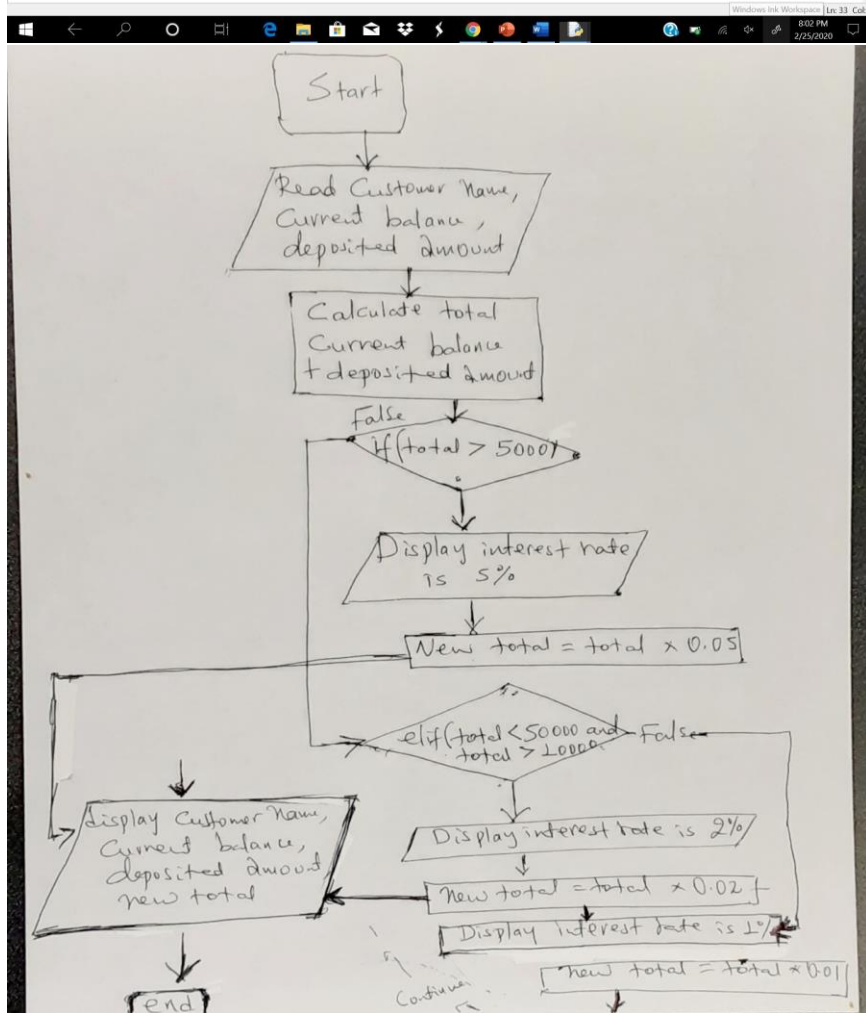 Windows Ink Workspace
Ln: 33 Col:
8:02 PM
2/25/2020
Start
Read Customer Name,
Current balance,
deposited amount
Calculate total
Current balance
+ deposited amount
False
if(total > 5000)
Display interest rate
is 5%
New total = total x 0.05
elif(total < 50000 and
total > 10000
False
Display interest rate is 2%
new total = total x 0.02
Display interest rate is 1%
new total = total * 0.01
display Customer Name,
Current balance,
deposited amount
new total
end
Continue